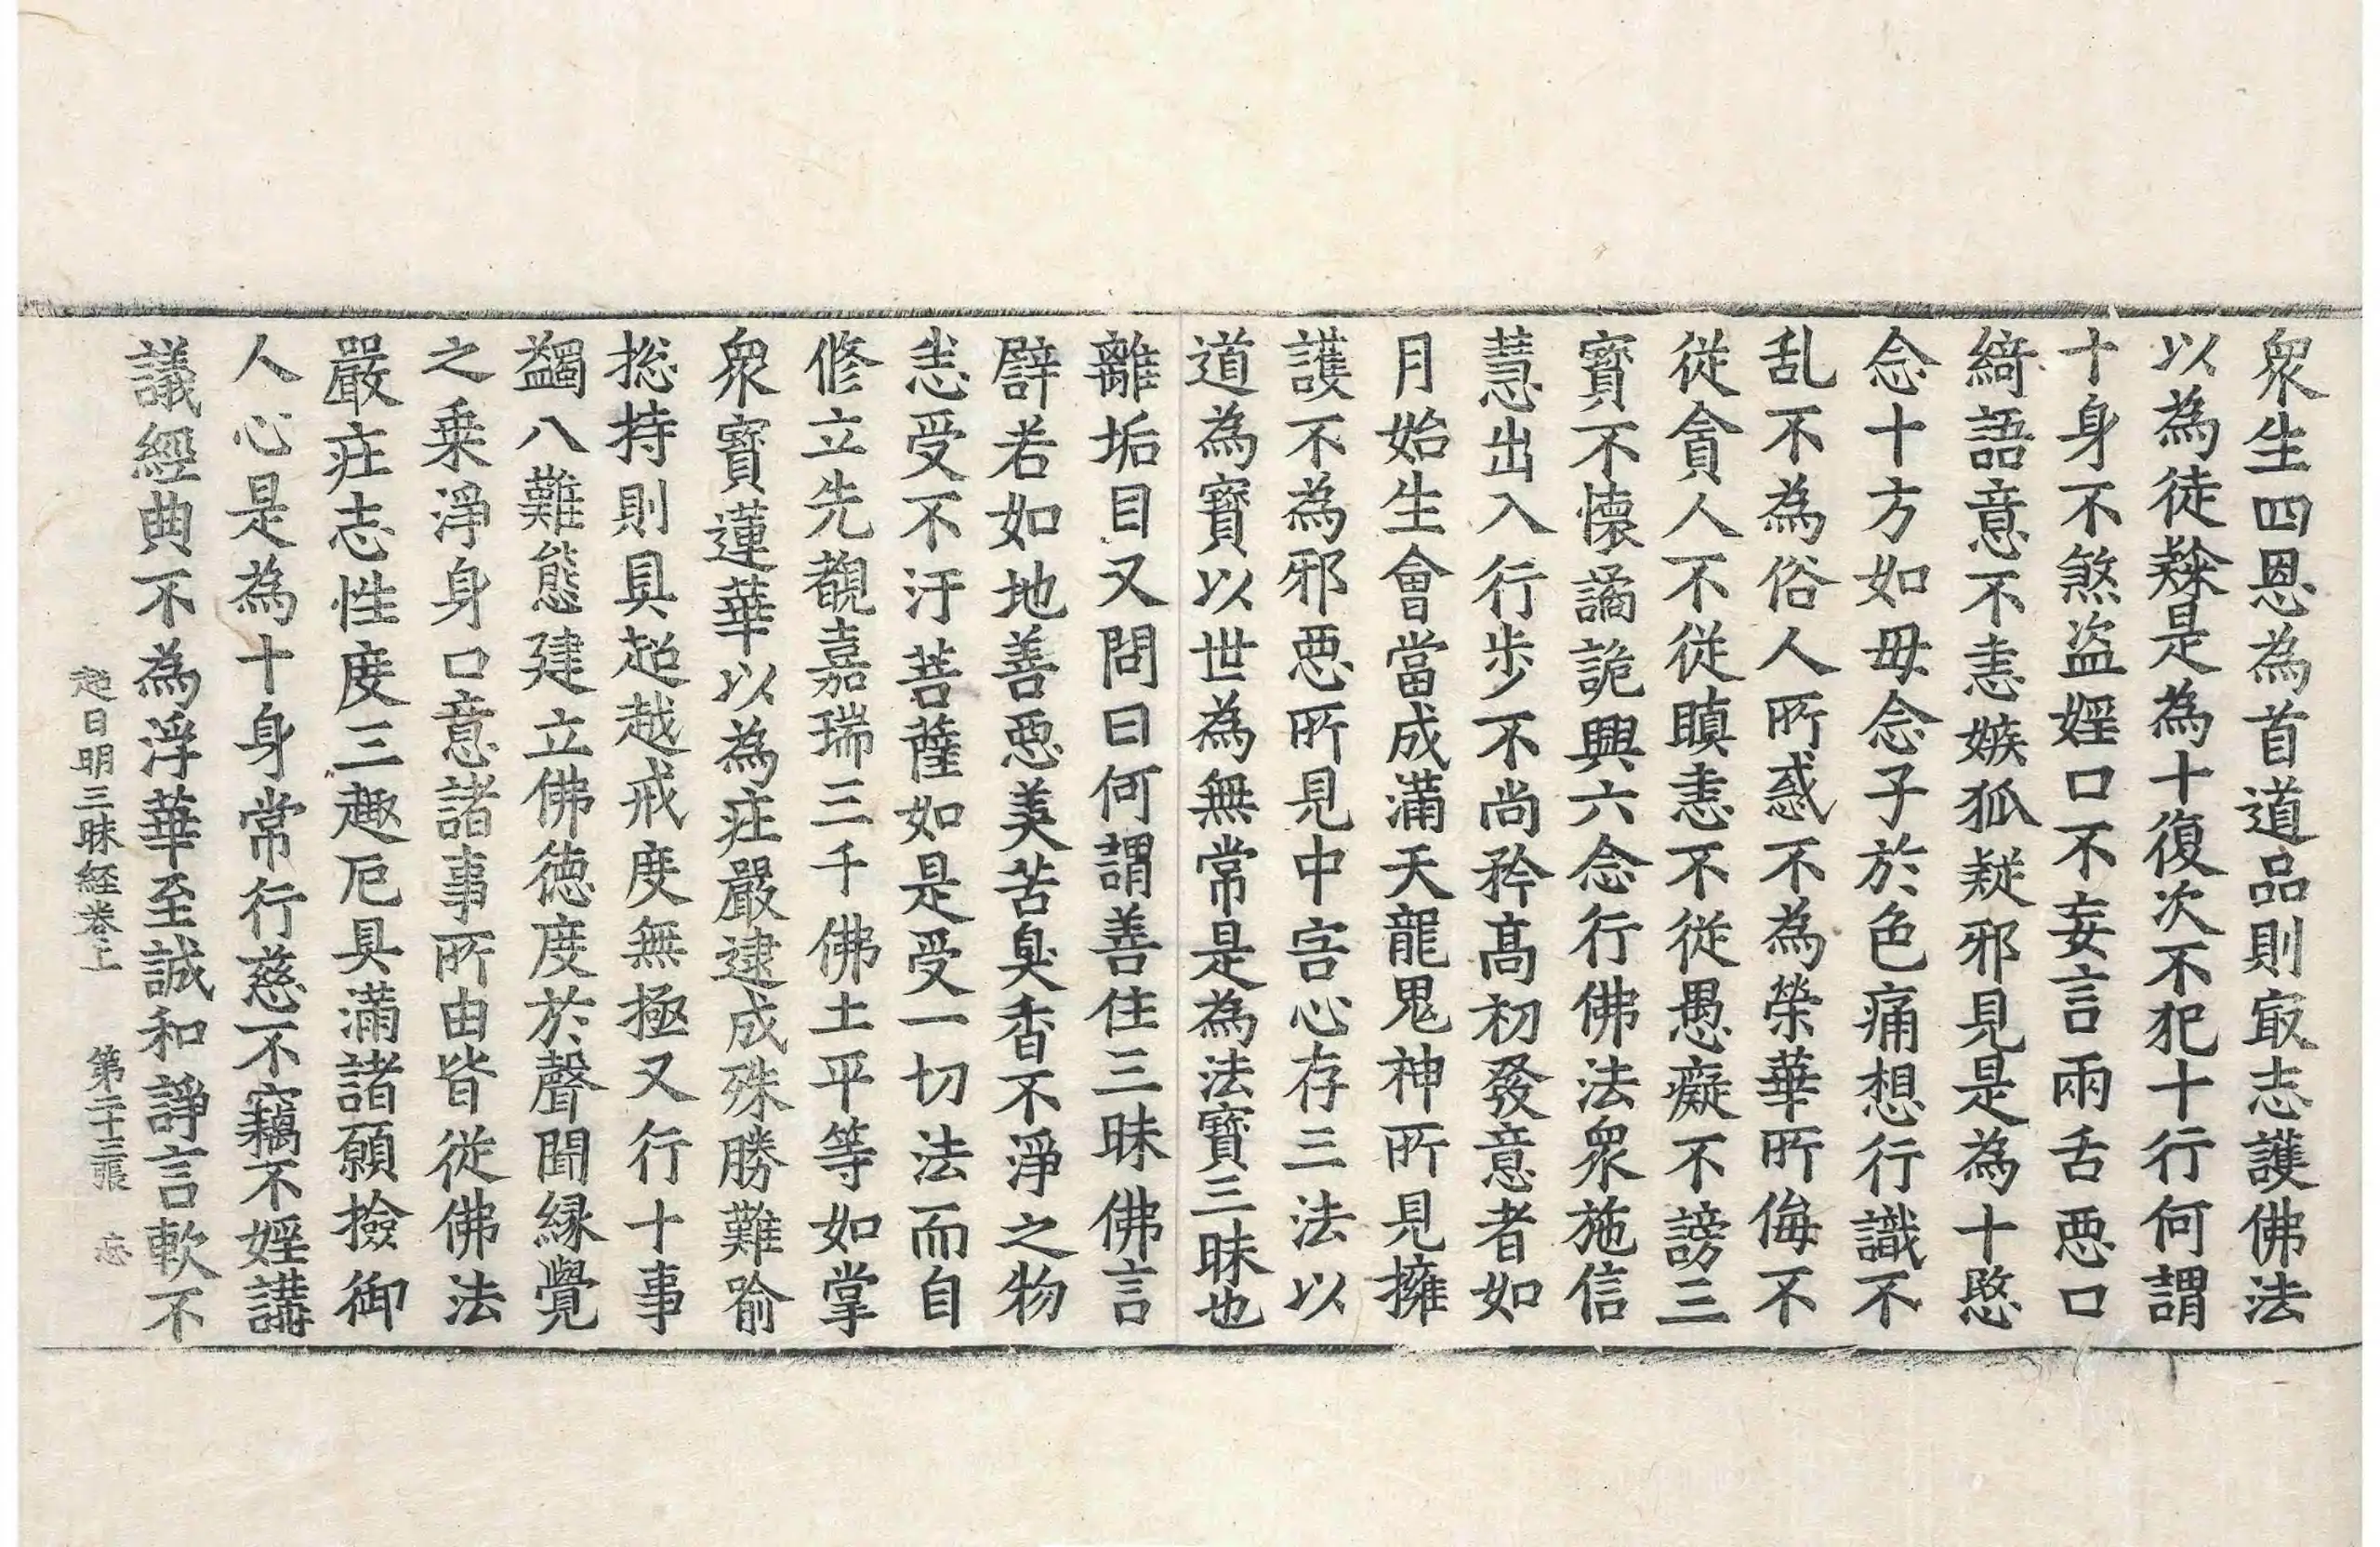 衆生四恩為首道品則㝡志護佛法
以為徒𩔖是為十復次不犯十行何謂
十身不煞盗婬口不妄言兩舌惡口
綺語意不恚嫉狐疑邪見是為十愍
念十方如母念子於色痛想行識不
乱不為俗人所惑不為榮華所侮不
從貪人不從瞋恚不從愚癡不謗三
寶不懷譎詭興六念行佛法衆施信
慧出入行步不尚矜髙初發意者如
月始生會當成滿天龍鬼神所見擁
護不為邪惡所見中害心存三法以
道為寶以世為無常是為法寶三昧也
離垢目又問曰何謂善住三昧佛言
譬若如地善惡美苦臭香不淨之物
悉受不汙菩薩如是受一切法而自
修立先覩嘉瑞三千佛土平等如掌
衆寶蓮華以為庄嚴逮成殊勝難喻
捴持則具超越戒度無極又行十事
蠲八難態建立佛德度於聲聞縁覺
之乗淨身口意諸事所由皆從佛法
嚴庄志性度三趣厄具滿諸願撿御
人心是為十身常行慈不竊不婬講
議經典不為浮華至誠和諍言軟不
超日明三昧経卷上 第二十三張 忘